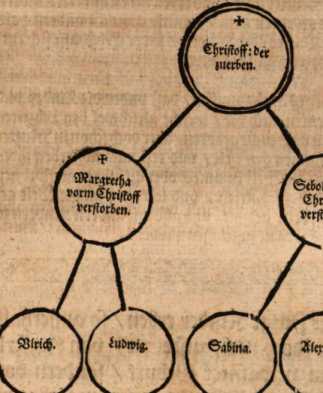 Christoff: der
zuerben.
Margretha
vorm Christoff
verstorben.
Ulrich.
Ludwig.
Sabina.